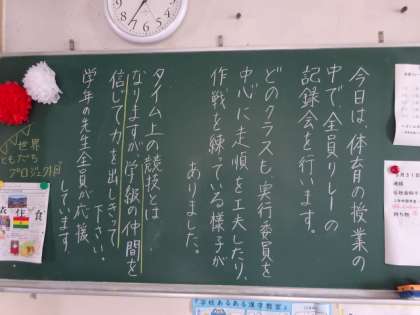 今日は、体育の授業の
中で、全員リレーの
記録会を行います。
どのクラスも、実行委員を
中心に走順を工夫したり、
作戦を練っている様子が
ありました。
タイム上の競技とは
なりますが学級の仲間を
信じて力を出しきって
下さい!!
学年の先生全員が応援
しています
世界
ともだち
プロジェクト
衣住食
学校あるある漢字教室